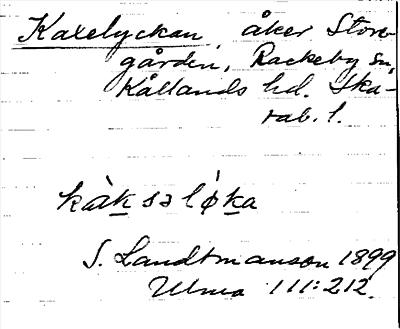 Kaxelyckan, åker Store-
gården, Rackeby sn,
Kållands hd. Ska-
rab. l.
kàksəlø̀ka
S. Landtmanson 1899
Ulma 111:212.